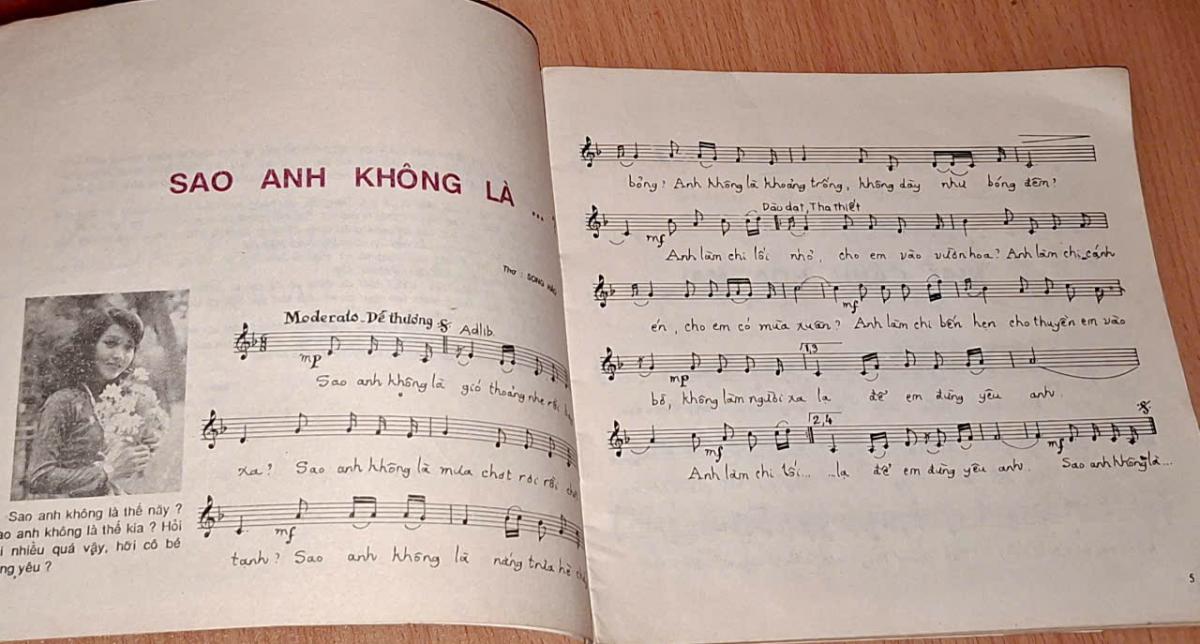 SAO ANH KHÔNG LÀ ...
Thơ : SONG HẢO
Moderato _ Dễ thương Adlib.
mp
Sao anh không là gió thoảng nhẹ rồi
xa? Sao anh không là mưa chợt rơi rồi
mf
tanh? Sao anh không là nắng trưa hè
Sao anh không là thế này ?
ao anh không là thế kia ? Hỏi
i nhiều quá vậy, hỡi cô bé
ng yêu ?
bỏng? Anh không là khoảng trống, không dày như bóng đêm?
Dìu dặt, Tha thiết
mf
Anh làm chi lối nhỏ, cho em vào vườn hoa? Anh làm chi cánh
mf
én, cho em có mùa xuân? Anh làm chi bến hẹn cho thuyền em vào
1,3
mp
bỏ, không làm người xa lạ để em đừng yêu anh.
2,4
mf mf
Anh làm chi lối... ...lạ để em đừng yêu anh. Sao anh không là...
5